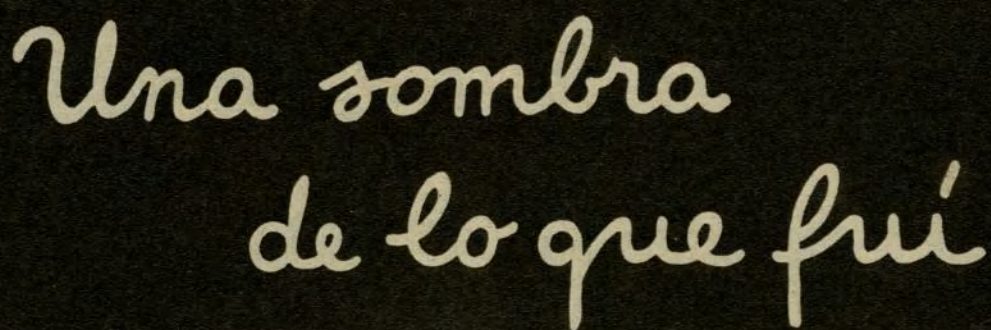 Una sombra
de lo que fuí